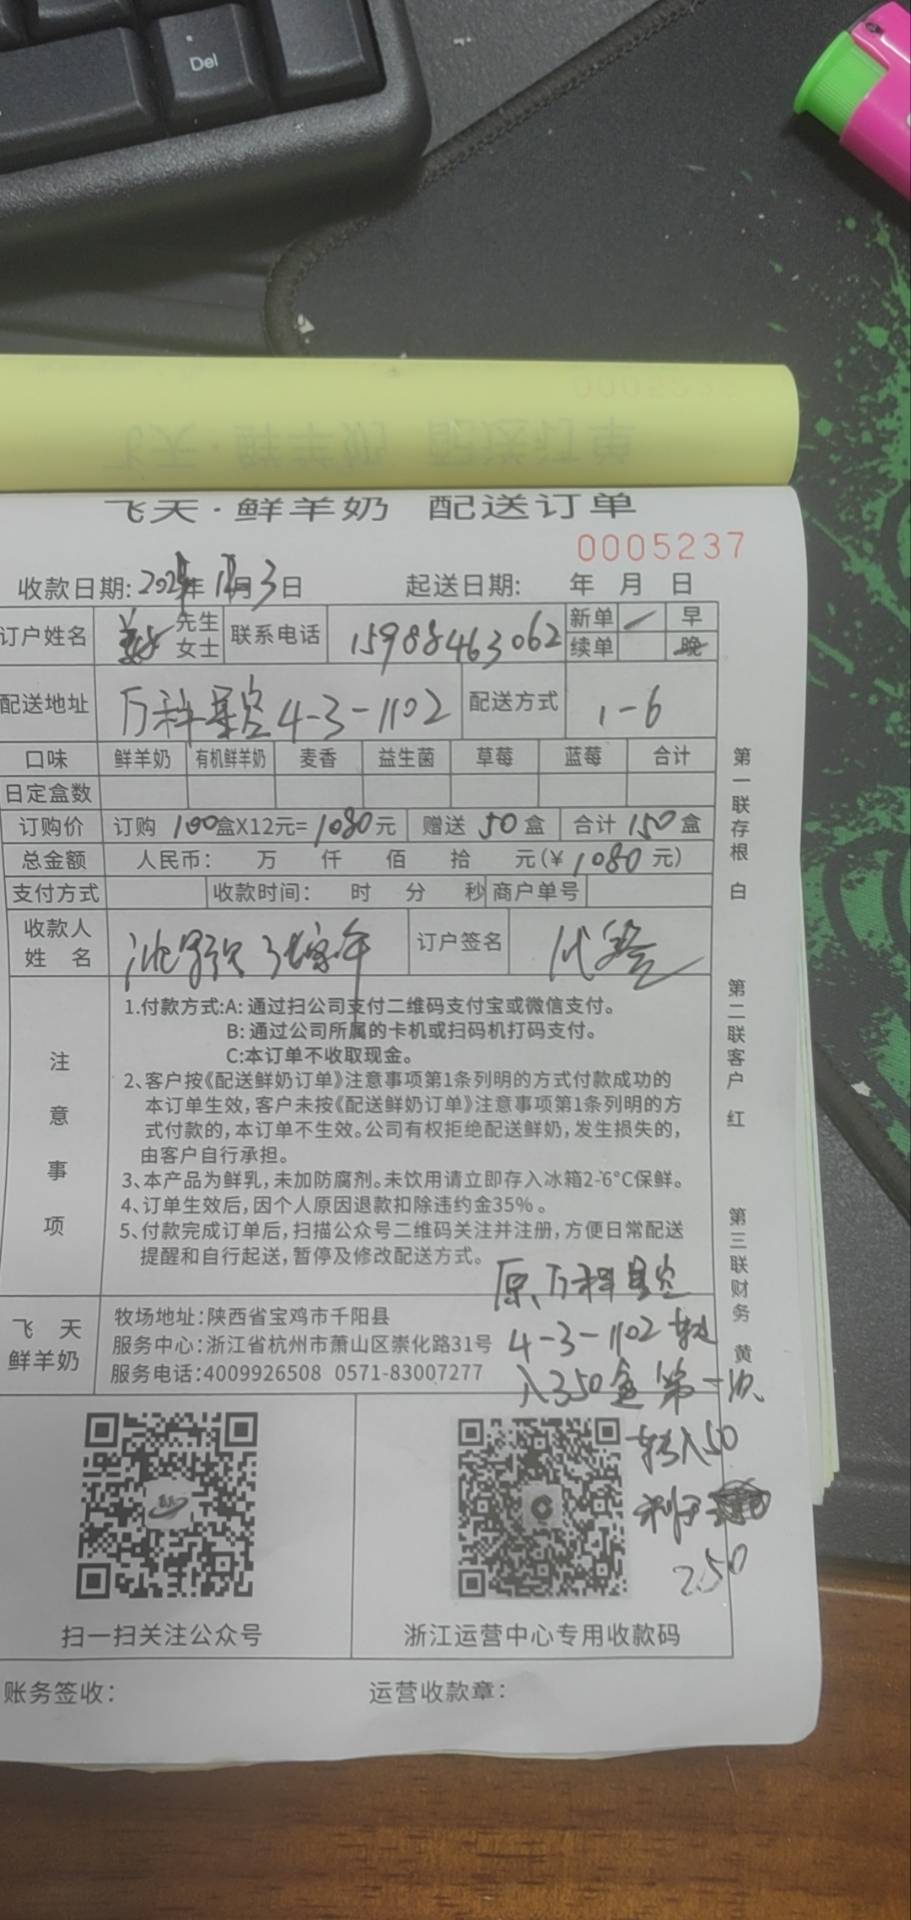 Del
飞天·鲜羊奶 配送订单
0005237
收款日期: 年 月3日 起送日期: 年 月 日
订户姓名 先生 女士 联系电话 15988463062 新单 早
续单 晚
配送地址 万科星空4-3-1102 配送方式 1-6
口味 鲜羊奶 有机鲜羊奶 麦香 益生菌 草莓 蓝莓 合计
日定盒数
订购价 订购 100盒X12元=1080元 赠送 50盒 合计 150盒
总金额 人民币: 万 仟 佰 拾 元(¥1080元)
支付方式 收款时间: 时 分 秒 商户单号
收款人姓名 订户签名 代签
注意事项
1.付款方式:A: 通过扫公司支付二维码支付宝或微信支付。
B: 通过公司所属的卡机或扫码机打码支付。
C:本订单不收取现金。
2、客户按《配送鲜奶订单》注意事项第1条列明的方式付款成功的
本订单生效,客户未按《配送鲜奶订单》注意事项第1条列明的方
式付款的,本订单不生效。公司有权拒绝配送鲜奶,发生损失的,
由客户自行承担。
3、本产品为鲜乳,未加防腐剂。未饮用请立即存入冰箱2-6°C保鲜。
4、订单生效后,因个人原因退款扣除违约金35%。
5、付款完成订单后,扫描公众号二维码关注并注册,方便日常配送
提醒和自行起送,暂停及修改配送方式。
原万科星空
4-3-1102转
入350盒第一次
转入50
250
飞天鲜羊奶
牧场地址:陕西省宝鸡市千阳县
服务中心:浙江省杭州市萧山区崇化路31号
服务电话:4009926508 0571-83007277
扫一扫关注公众号 浙江运营中心专用收款码
账务签收: 运营收款章:
第一联存根 白
第二联客户 红
第三联财务 黄